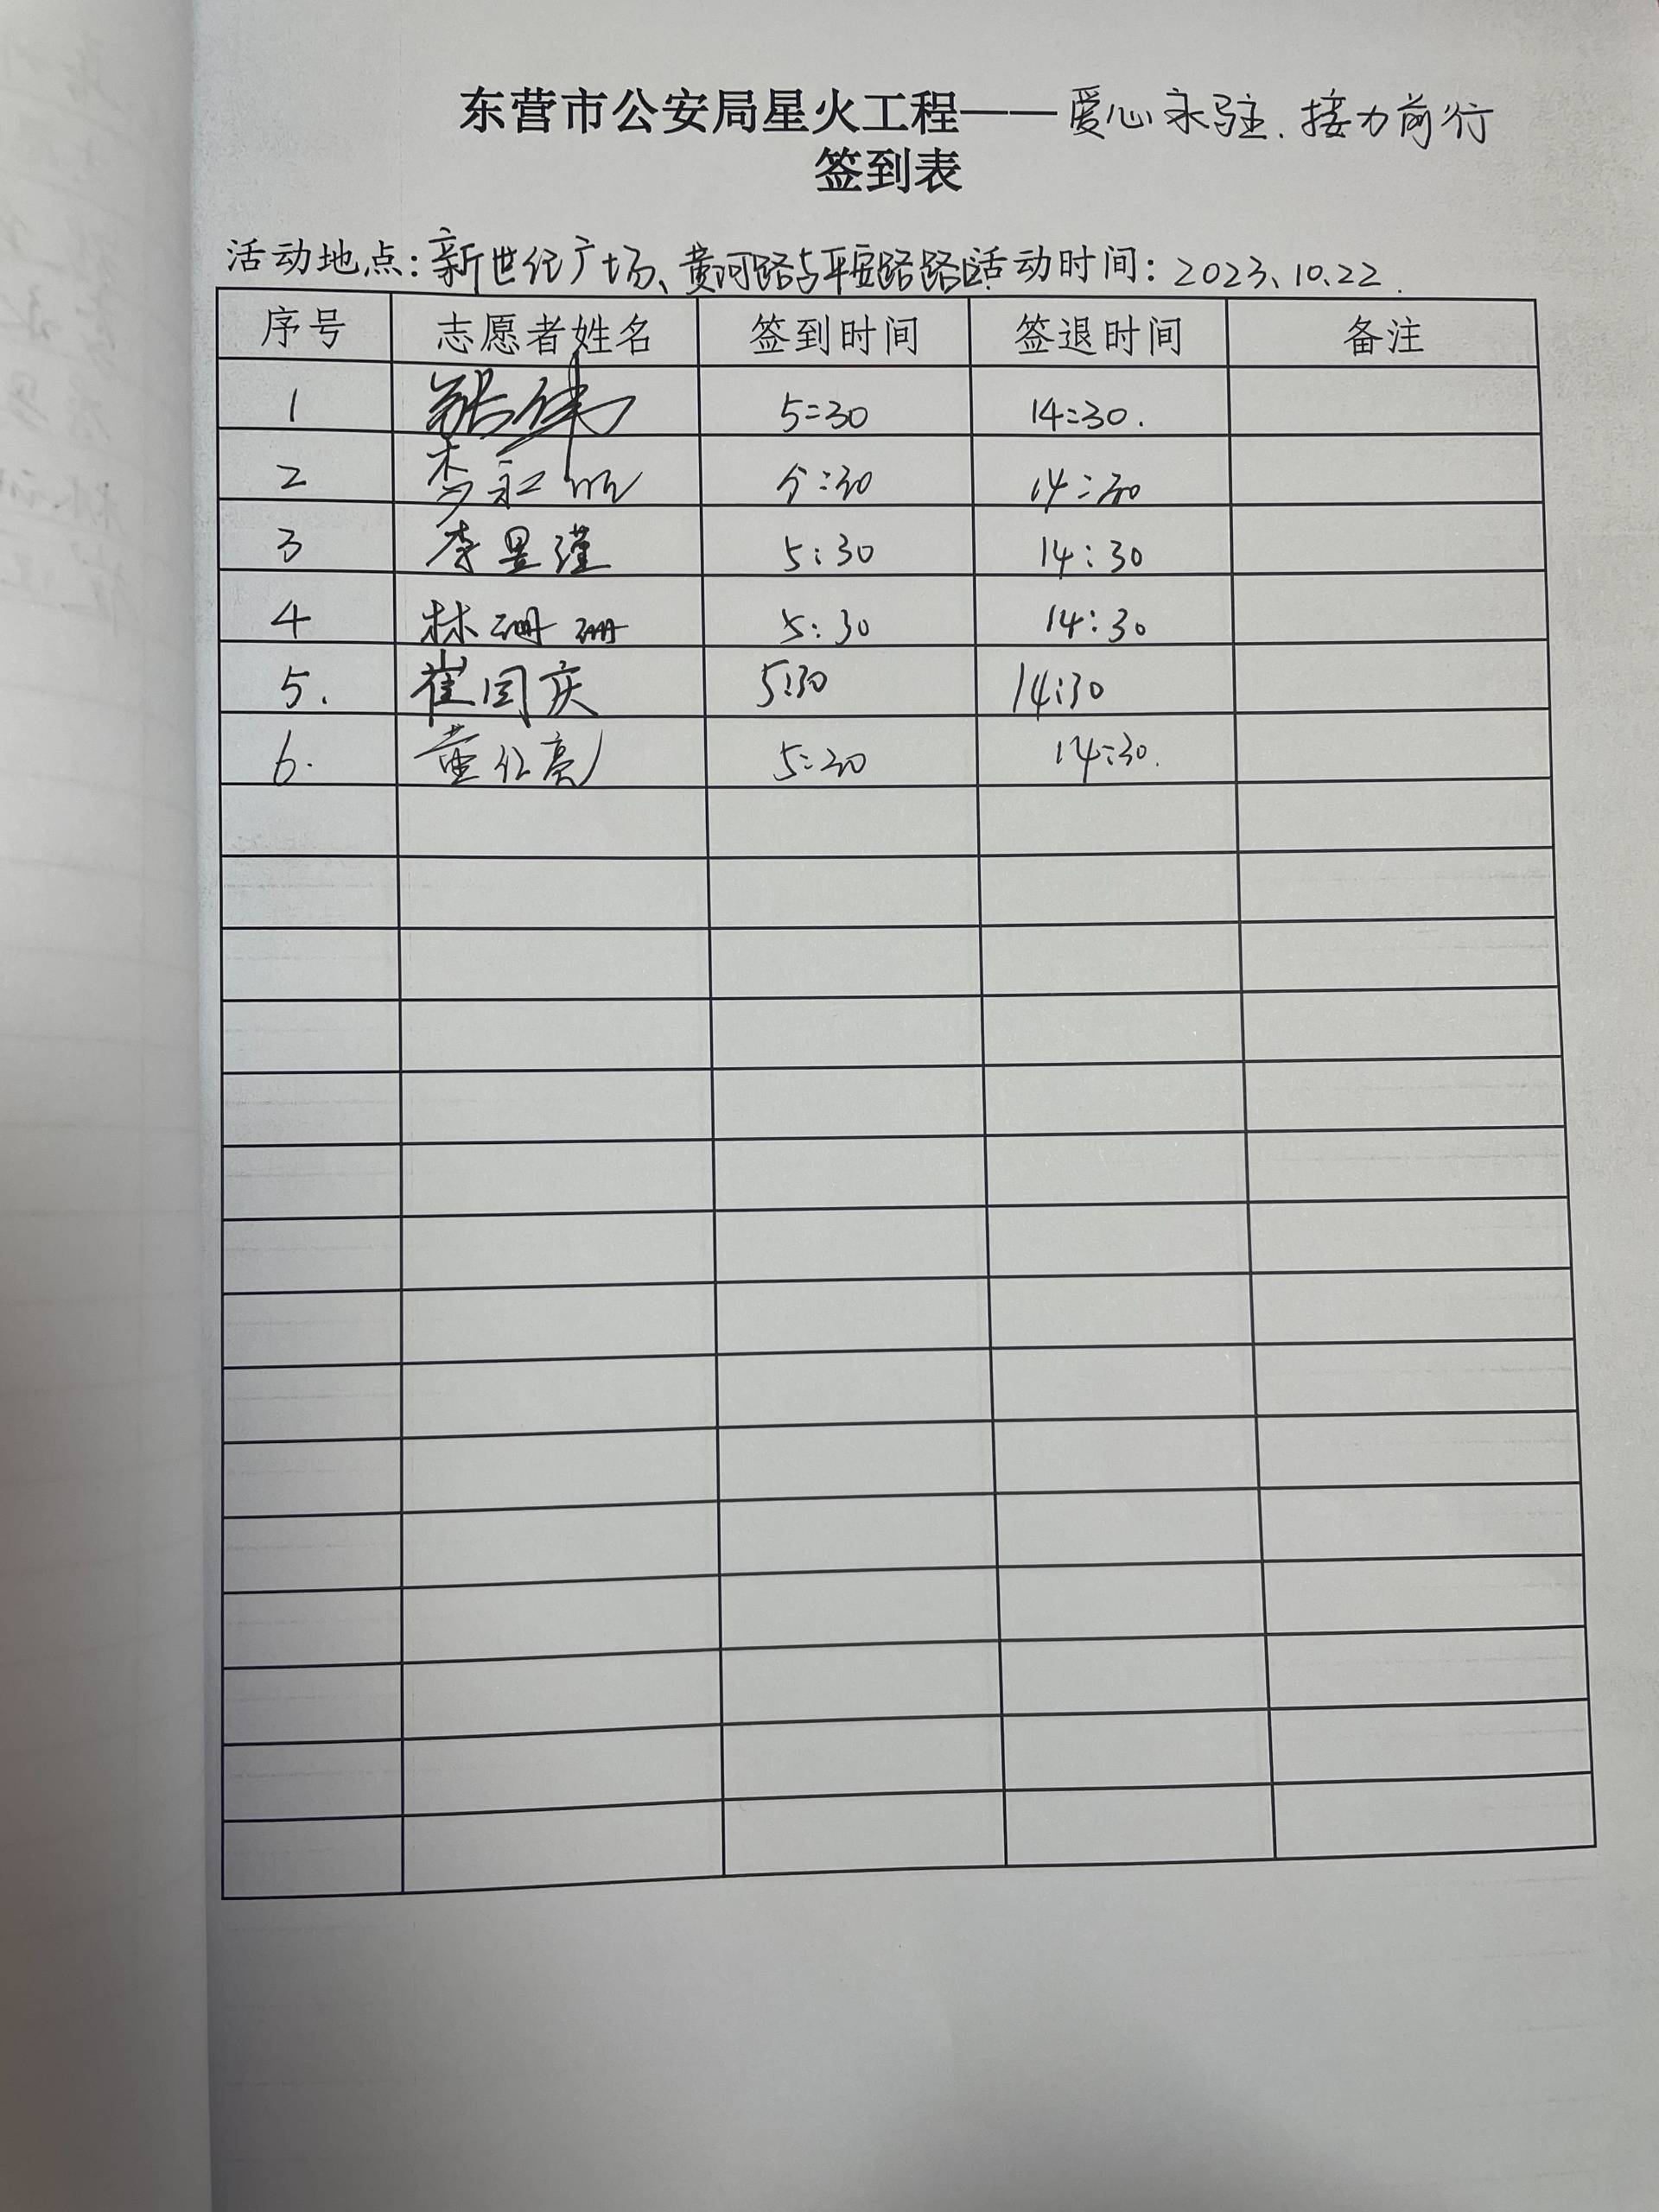 东营市公安局星火工程——爱心永驻.接力前行
签到表
活动地点:新世纪广场、黄河路与平安路路区活动时间:2023、10、22.
序号 志愿者姓名 签到时间 签退时间 备注
1 5:30 14:30.
2 李 5:30 14:30
3 李昱瑾 5:30 14:30
4 林珊珊 5:30 14:30
5. 崔国庆 5:30 14:30
6. 董仁亮 5:30 14:30.